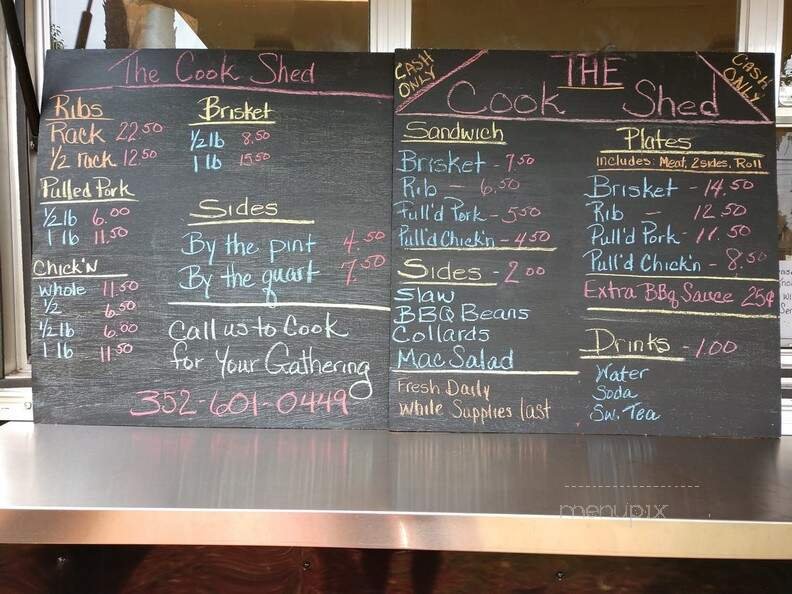 The Cook Shed
Ribs
Rack 22.50
1/2 rack 12.50
Pulled Pork
1/2 lb 6.00
1 lb 11.50
Chick'N
whole 11.50
1/2 6.50
1/2 lb 6.00
1 lb 11.50
Brisket
1/2 lb 8.50
1 lb 15.50
Sides
By the pint 4.50
By the quart 7.50
Call us to Cook
for Your Gathering
352-601-0449
CASH ONLY
THE
Cook Shed
CASH ONLY
Sandwich
Brisket - 7.50
Rib - 6.50
Pull'd Pork - 5.50
Pull'd Chick'n - 4.50
Sides - 2.00
Slaw
BBQ Beans
Collards
Mac Salad
Fresh Daily
While Supplies last
Plates
includes: Meat, 2 sides, Roll
Brisket - 14.50
Rib - 12.50
Pull'd Pork - 11.50
Pull'd Chick'n - 8.50
Extra BBq Sauce 25¢
Drinks - 1.00
Water
Soda
Sw. Tea
menupix